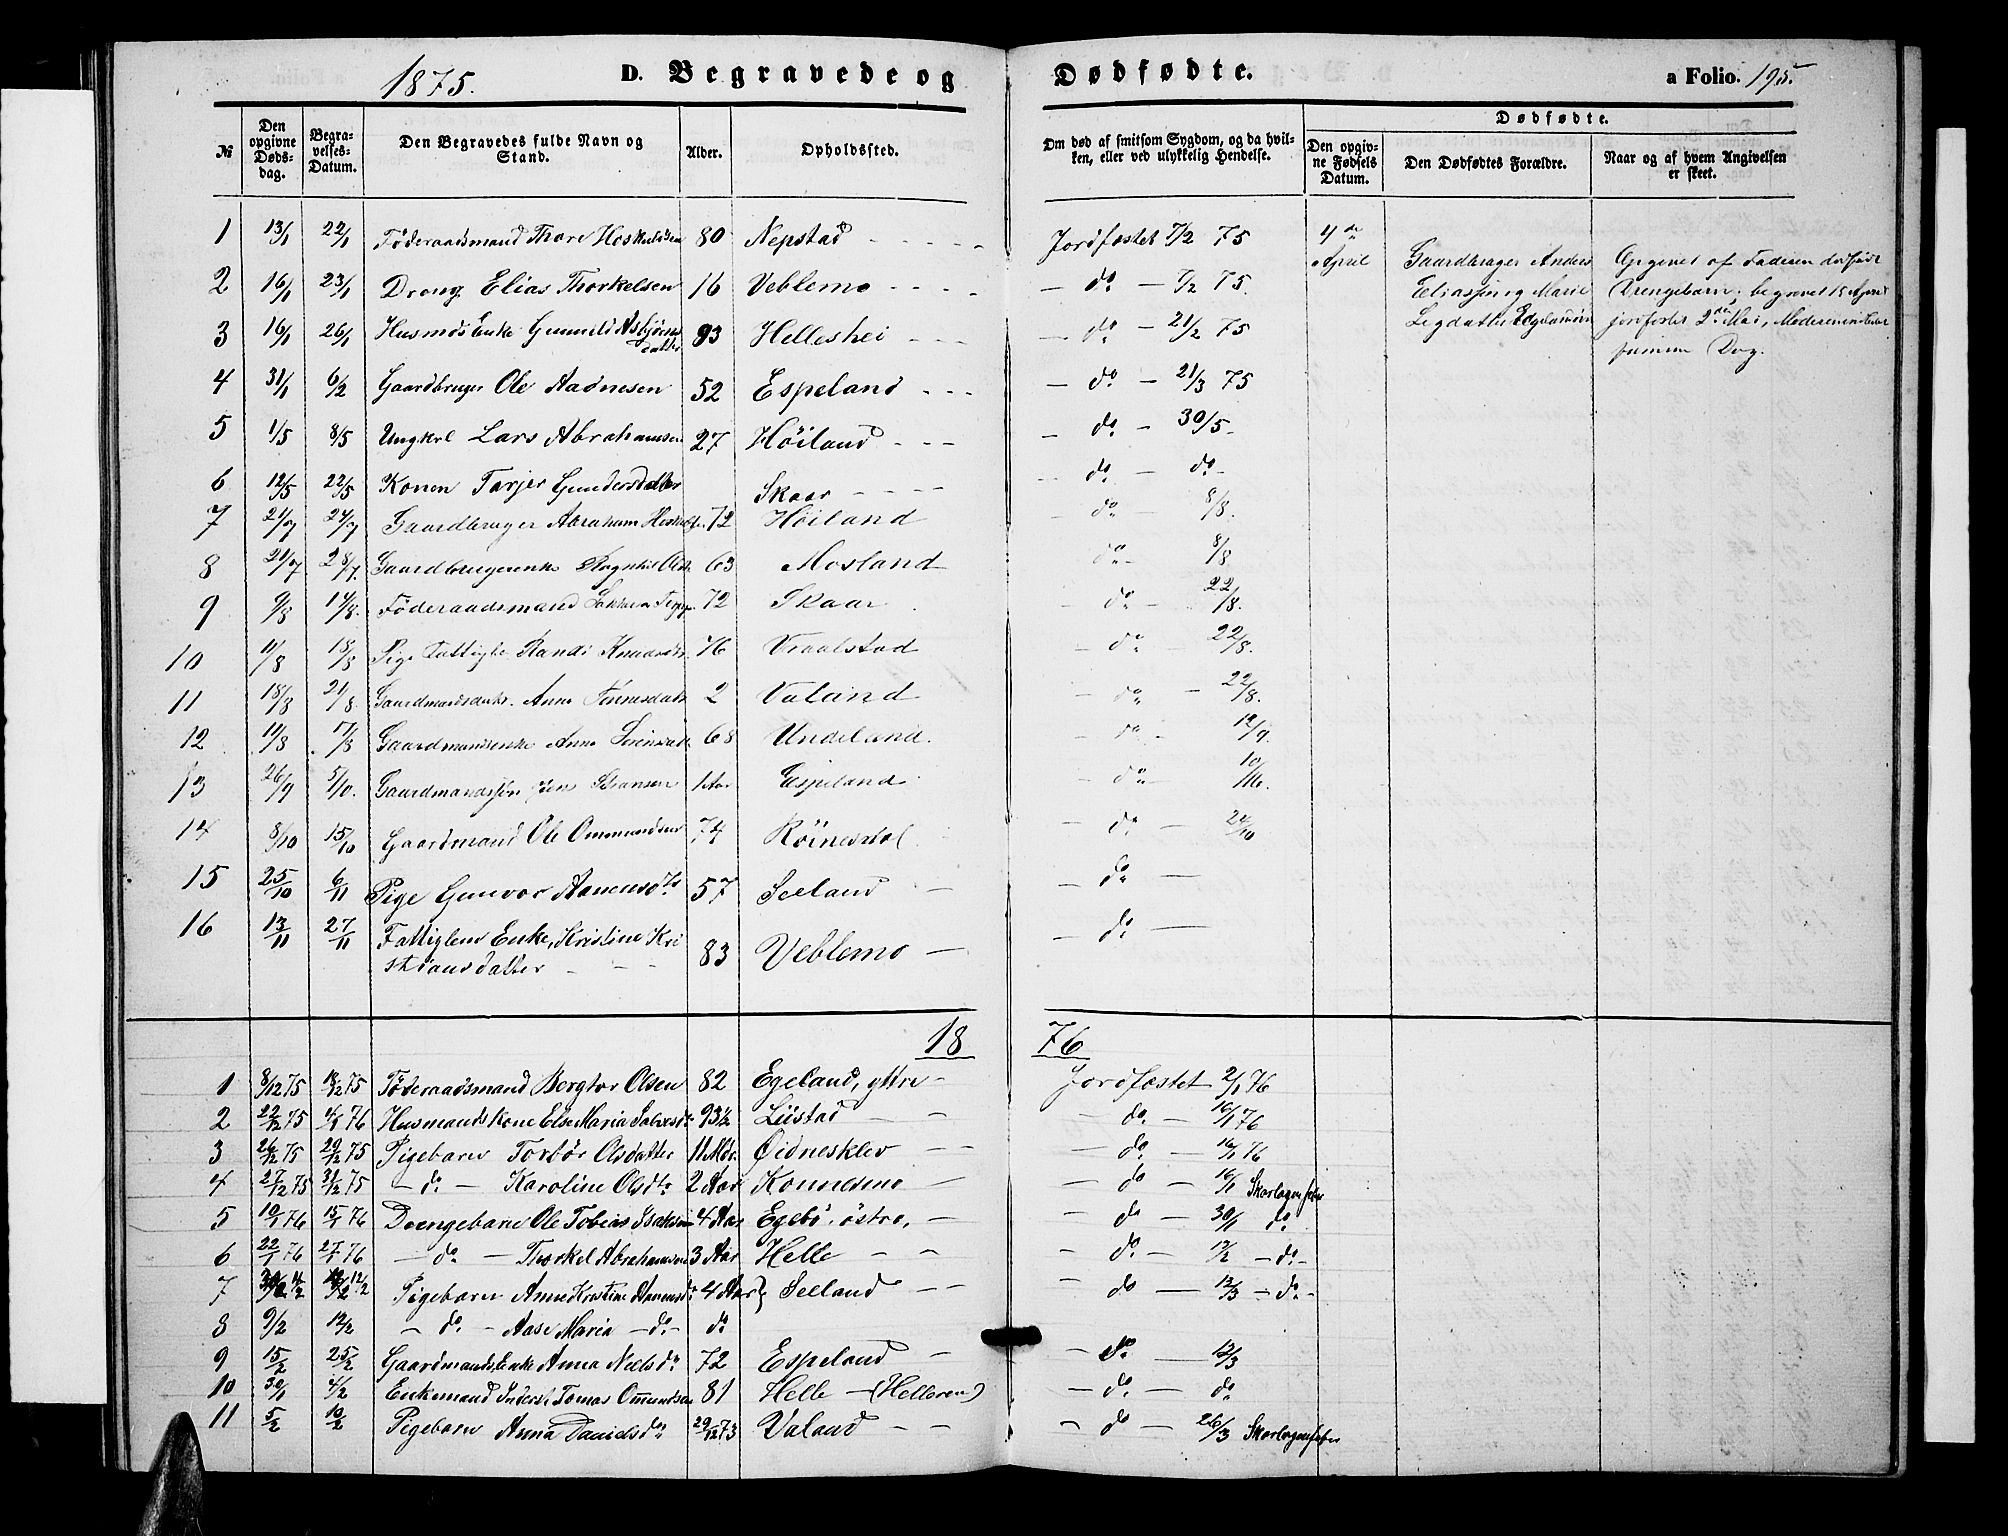 1875. D. Begravede og Dødfødte. a Folio. 195.
№ Den opgivne Døds-dag. Begra-velses-Datum. Den Begravedes fulde Navn og Stand. Alder. Opholdssted. Om død af smitsom Sygdom, og da hvil-ken, eller ved ulykkelig Hendelse. Dødfødte. Den opgiv-ne Fødsels Datum. Den Dødfødtes Forældre. Naar og af hvem Angivelsen er skeet.
1 13/1 22/1 Føderaadsmand Thore Hoskuldsen 80 Nepstad - - - - - Jordfæstet 7/2 75 4de April Gaardbruger Anders Opgivet af Faderen dødfødt
2 16/1 23/1 Dreng Elias Thorkelsen 16 Veblemo - - - - - do - 7/2 75. Eliassen og Marie Drengebarn, begravet 15 April
3 16/1 26/1 Husmds Enke Gunnild Asbjørns datter 93 Helleshei - - - - do - 21/2 75 jordfæstet 2den Mai, Moderen
samme Dag.
4 31/1 6/2 Gaardbruger Ole Aadnesen 52 Espeland - - - - do - 21/3 75
5 1/5 8/5 Ungkrl Lars Abrahamsen 27 Höiland - - - - do - 30/5 -
6 12/5 22/5 Konen Tarjer Gundersdatter Skaar - - - - - do - do -
7 21/7 24/7 Gaardbruger Abraham 72 Höiland - do - 8/8.
8 21/7 28/7. Gaardbrugerenke 63 Mosland do - 8/8
9 9/8 14/8. Føderaadsmand 72 Skaar - do - 22/8.
10 11/8 18/8 Pige Fattigle Randi 76 Vraalstad - do 22/8.
11 18/8 21/8 Gaardmandsdatr. Anne 2 Valand - do - 22/8.
12 11/8 17/8 Gaardmandsenke Anne 68 Undeland. - do - 12/9.
13 26/9 5/10. Gaardmandssøn 1 Aar Espeland - do - 10/
14 8/10 15/10 Gaardmand Ole Ommundsen 74 Röinesdal - do - 24/10
15 25/10 6/11 Pige Gunvor Aanensdtr 57 Seeland - - do -
16 13/11 27/11 Fattiglem Enke, Kristine Kri
stiansdatter - - - 83 Veblemo - - do -
1876
1 8/12 75 18/12 75 Føderaadsmand Bergtor Olsen 82 Egeland, yttre - Jordfæstet 2/1 76
2 22/12 75 4/1 76 Husmandskone Else Maria 93½ Liistad - - - do - 16/1 76
3 26/12 75 29/12 75 Pigebarn Torbör Olsdatter 11 Mdr. Øidnesklev - - do - 16/1 76
4 27/12 75 31/12 75 - do - Karoline Olsdtr 2 Aar Konnesmo - - do - 16/1 Skarlagensfeber
5 10/1 76 15/1 76 Drengebarn Ole Tobias Isaksen 4 Aar Egebö, östre, - - do - 30/1 do
6 22/1 76 27/1 76 - do - Thorkel Abrahamsen 3 Aar Helle - - - do - 13/2 - do -
7 12/2 Pigebarn Anne Kristine Aanensdr 4 Aar Seeland - - - do - 12/3 - do -
8 9/2 12/2 - do - Aase Maria - do - do
9 15/2 25/2 Gaardmands Enke Anna Nielsdr 72 Espeland - - do - 12/3
10 30/1 4/2 Enkemand Inderst Tomas Omundsen 81 Helle - (Helleren) - do - do
11 5/2 10/2 Pigebarn Anna Danielsdr 29/12 73 Valand - - - do - 26/3 Skarlagensfeber